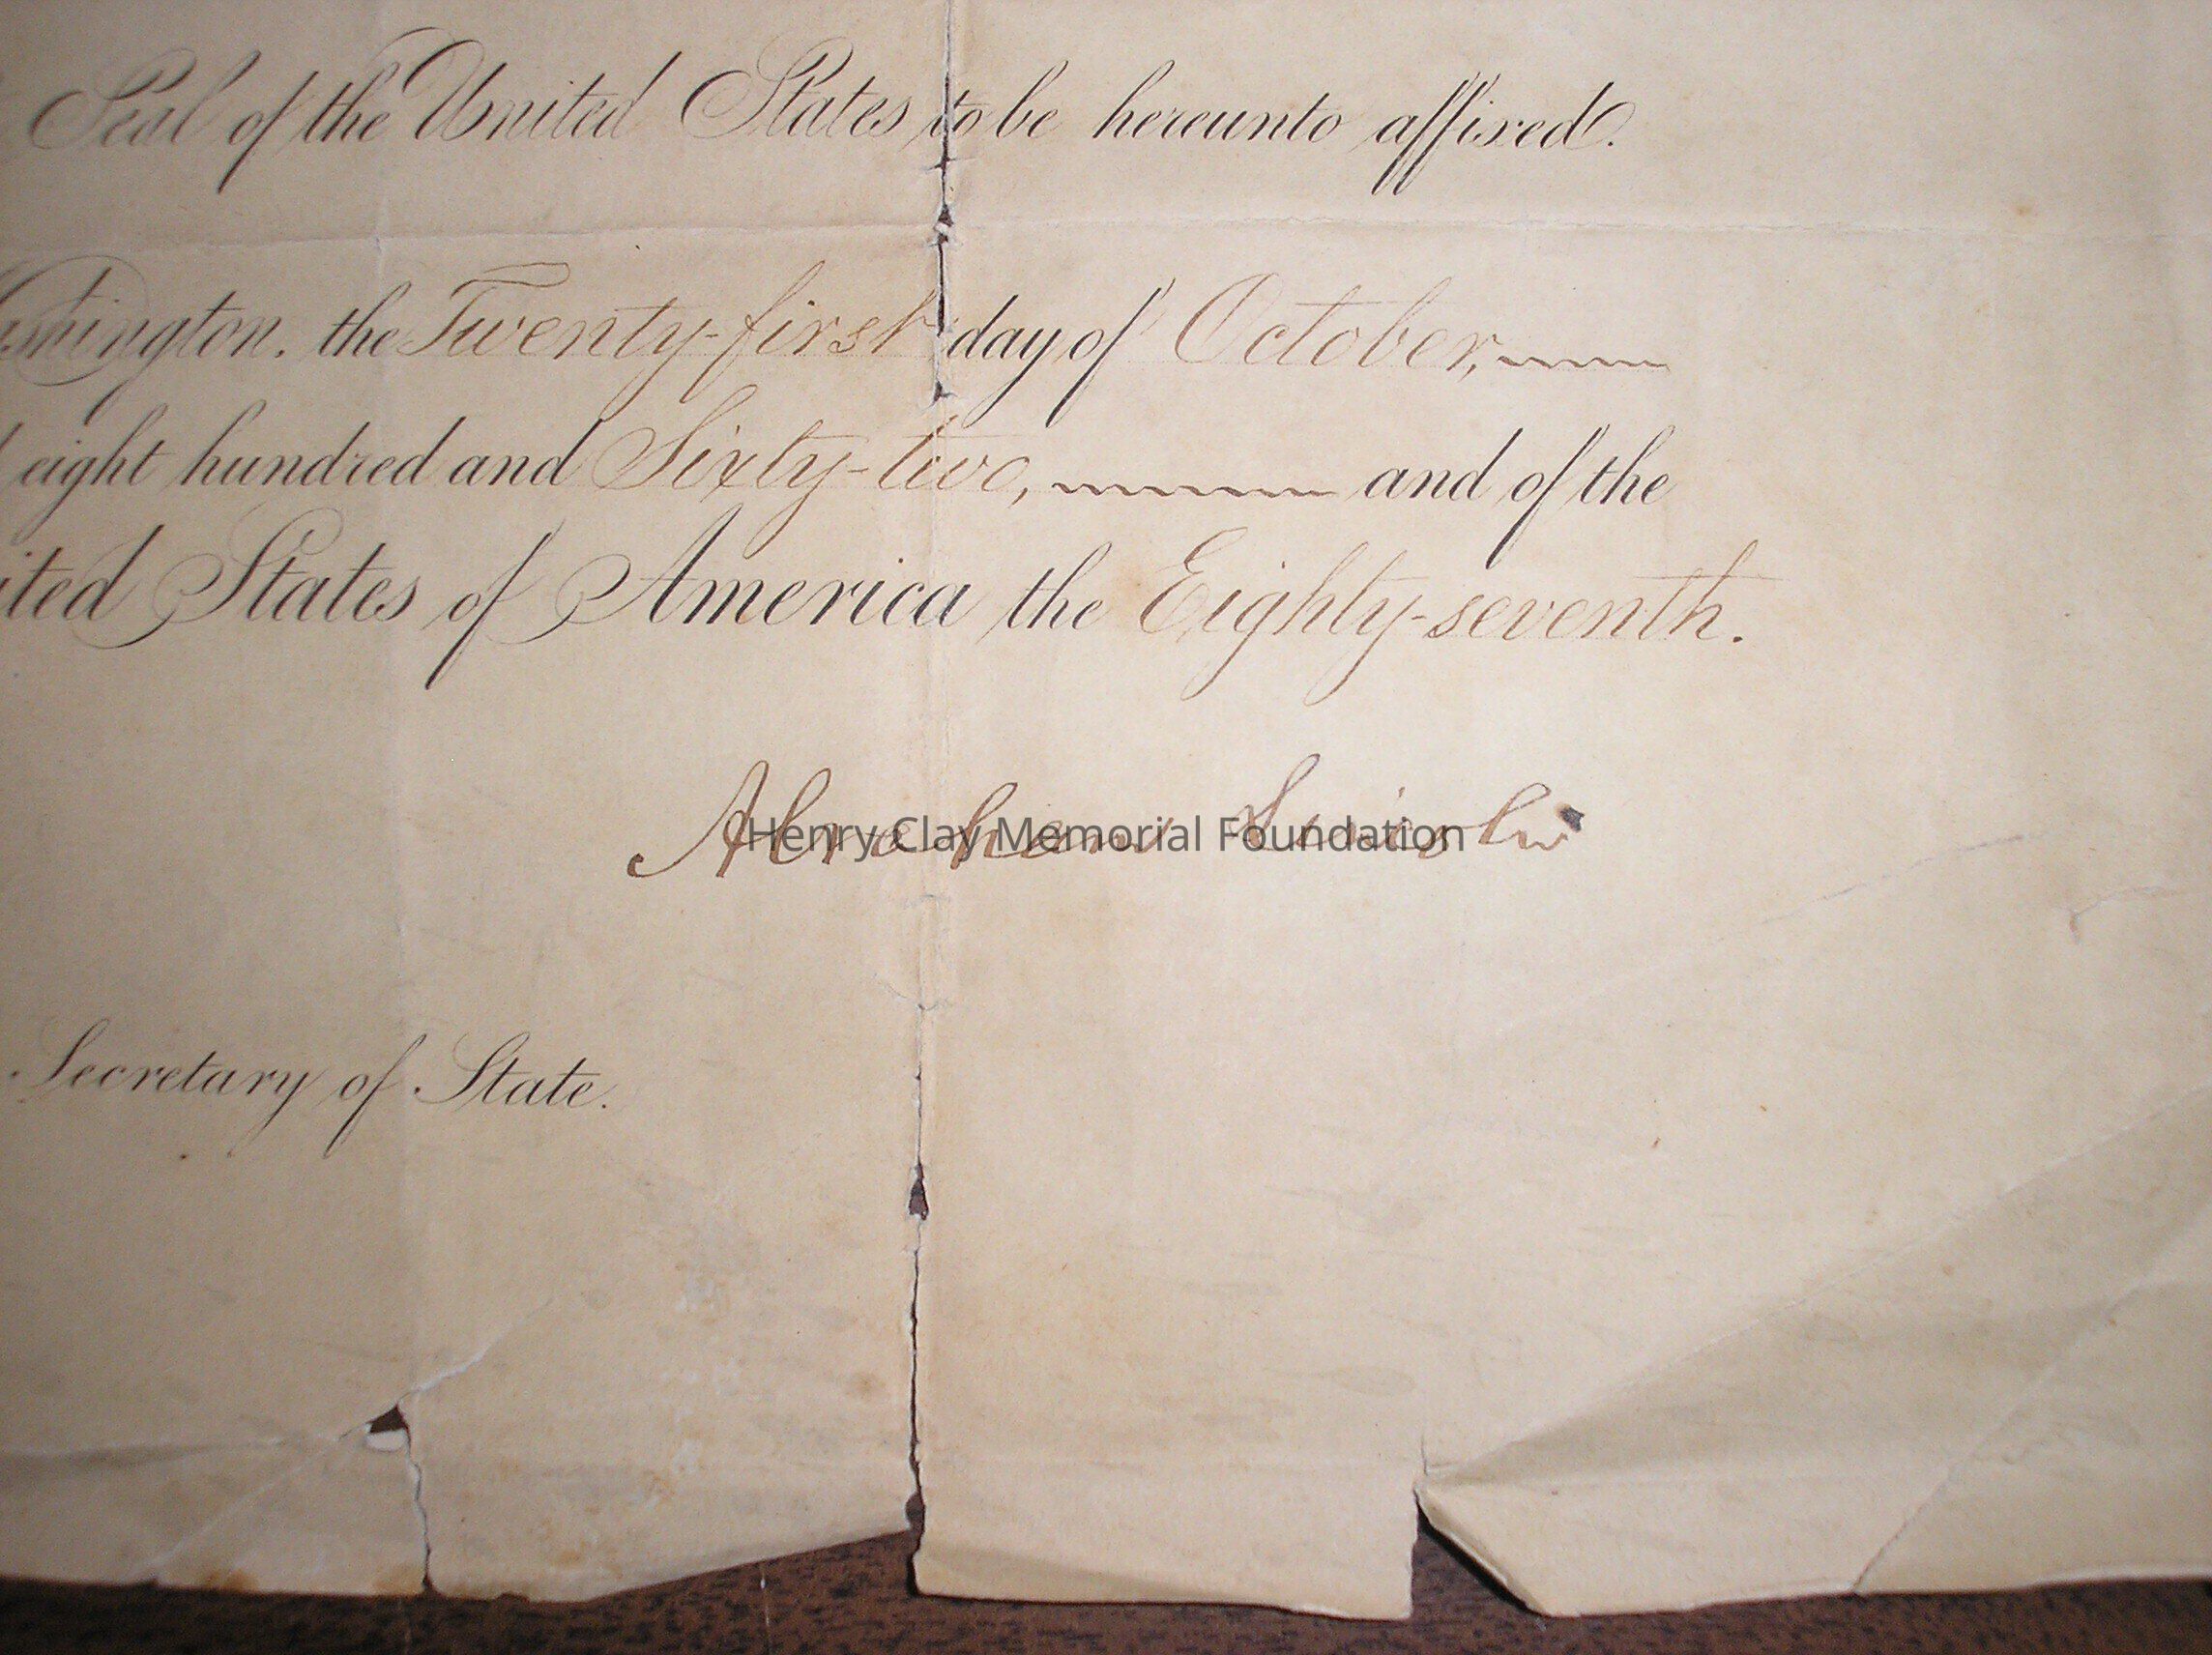 Seal of the United States to be hereunto affixed.
shington. the Twenty-first day of October,
eight hundred and Sixty-two, and of the
ited States of America the Eighty-seventh.
Abraham Lincoln
Henry Clay Memorial Foundation
Secretary of State.